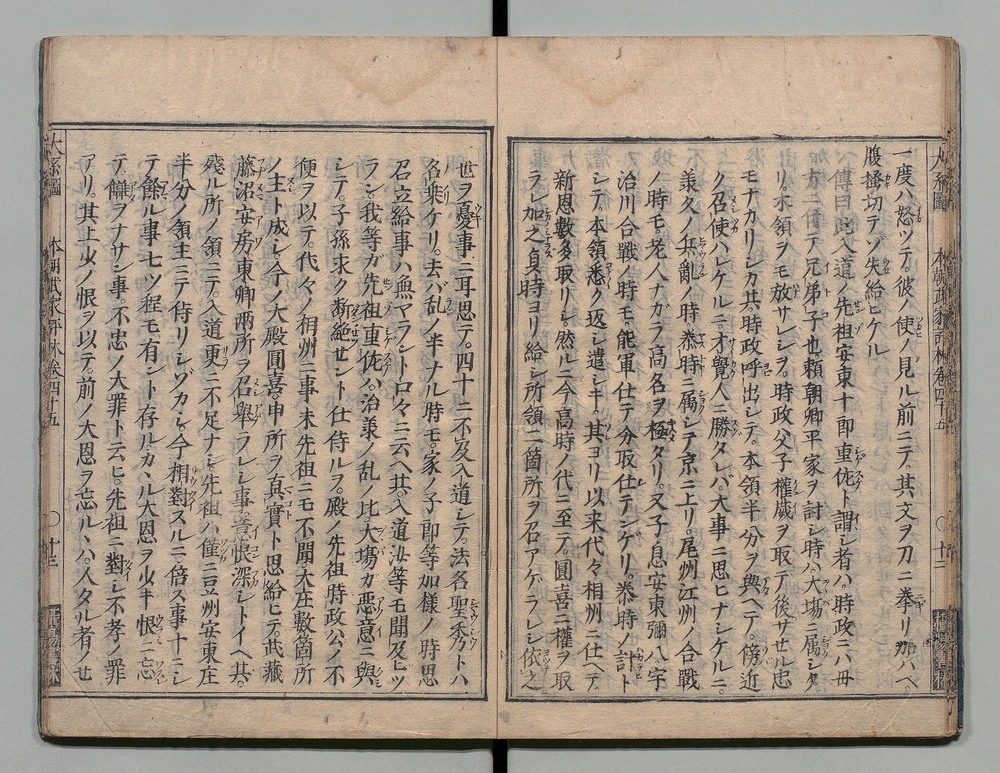 一度ハ怒ツテ。彼ノ使ノ見ル前ニテ。其文ヲ刀ニ拳リ加ハヘ。
腹搔切テゾ失給ヒケル
傳曰此入道ノ先祖安東十郎重侂ト謂シ者ハ。時政ニハ毋
方ニ付テ兄弟ノ子也頼朝卿平家ヲ討シ時ハ。大塲ニ属シタ
リ。本領ヲモ放サレシヲ。時政父子權威ヲ取テ後サセル忠
モナカリシカ共。時政呼出シテ。本領半分ヲ與ヘテ。傍近
ク召使ハレケルニ。才覺人ニ勝タレバ。大事ニ思ヒナシケルニ。
羕久ノ兵亂ノ時泰時ニ属シテ京ニ上リ。尾州江州ノ合戰
ノ時モ。老人ナガラ高名ヲ極タリ。又子息安東彌八。宇
治川合戰ノ時モ。能軍仕テ分取仕テンゲリ。泰時ノ計ト
シテ。本領悉ク返シ遣シキ。其ヨリ以来代々相州ニ仕ヘテ。
新恩數多取リシ。然ルニ今高時ノ代ニ至テ。圓喜ニ權ヲ取
ラレ加之貞時ヨリ給シ所領二箇所ヲ召アゲラレシ依之
世ヲ憂事ニ耳思テ。四十ニ不及入道シテ。法名聖秀トハ
名乗ケリ。去バ乱ノ半ナル時モ。家ノ子郎等加様ノ時思
召立給事ハ無マラント口々ニ云ヘ共。入道汝等モ聞及ビツ
ラン。我等ガ先祖重侂ハ。治羕ノ乱ノ比大塲カ悪意ニ與
シテ。子孫末ク断絶セント仕侍ルヲ。殿ノ先祖時政公ノ不
便ヲ以テ。代々ノ相州ニ事未先祖ニモ不聞大庄數箇所
ノ主ト成シ。今ノ大殿圓喜ノ申所ヲ真實ト思給ヒテ。武藏
藤沼安房東卿両所ヲ召舉ラレシ事。意恨深シトイヘ共。
殘ル所ノ領ニテ。入道更ニ不足ナシ。先祖ハ僅ニ豆州安東庄
半分ノ領主ニテ侍リシゾカシ。今相對スルニ倍ス事十ニシ
テ餘ル事七ツ程モ有ント存ルカヽル大恩ヲ少キ恨ニ忘
テ。讎ヲナサン事。不忠ノ大罪ト云ヒ。先祖ニ對シ不孝ノ罪
アリ。其上少ノ恨ヲ以テ。前ノ大恩ヲ忘ルヽハ。人タル者ノセ